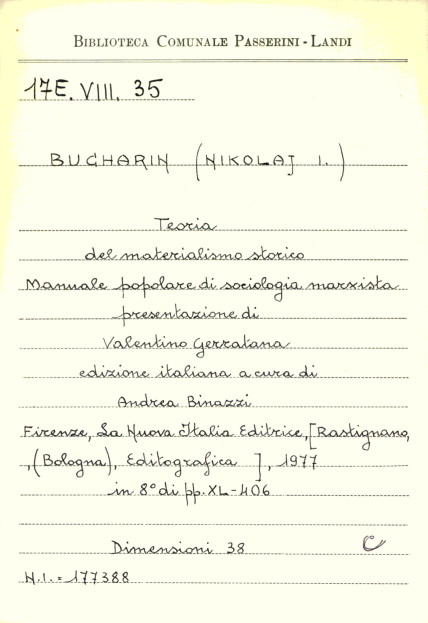 BIBLIOTECA COMUNALE PASSERINI - LANDI
17E. VIII. 35
BUCHARIN (NIKOLAJ I.)
Teoria
del materialismo storico
Manuale popolare di sociologia marxista
presentazione di
Valentino Gerratana
edizione italiana a cura di
Andrea Binazzi
Firenze, La Nuova Italia Editrice, [Rastignano,
,(Bologna), Editografica ], 1977
in 8° di pp. XL-406
Dimensioni 38 C
N.I. = 177388